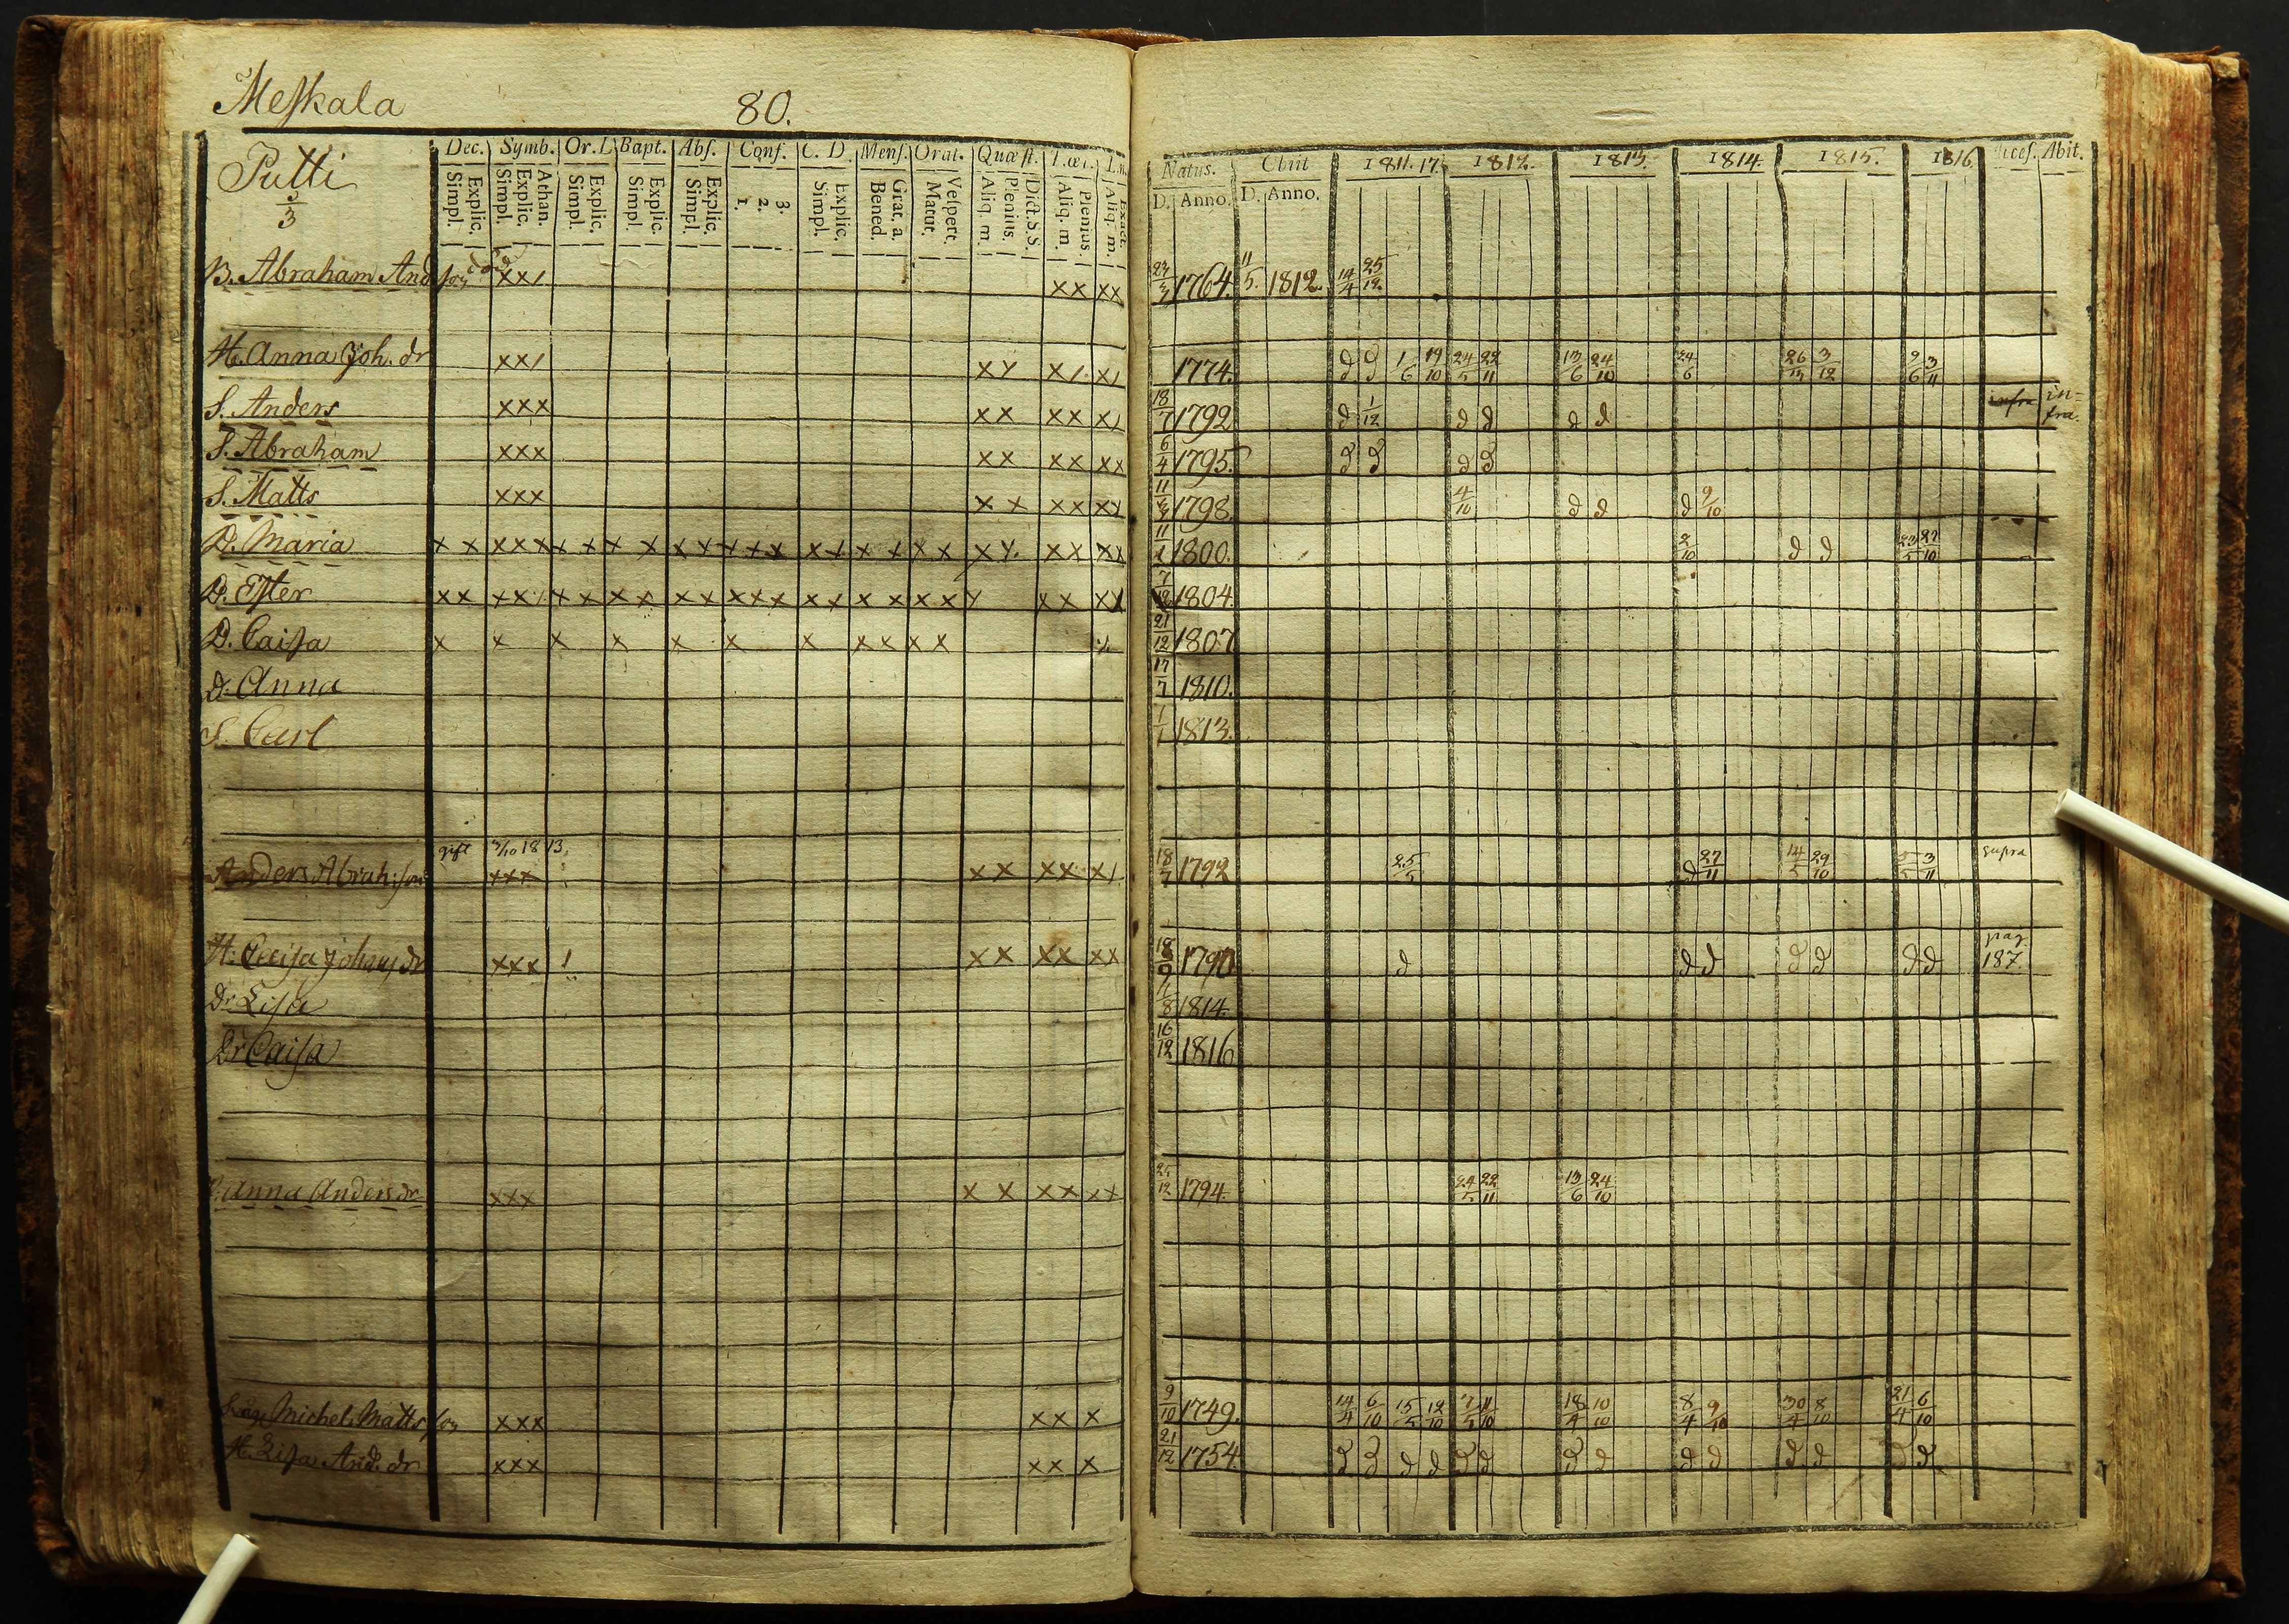 Meſkala 80.
Putti
3
Dec. Symb. Or. D Bapt. Abſ. Conf. C. D. Menſ. Orat. Quæſt.
Simpl. Explic. Simpl. Explic. Athan. Simpl. Explic. Simpl. Explic. Simpl. Explic. 1. 2. 3. Simpl. Explic. Bened. Grat. a. Matut. Veſpert. Aliq. m. Plenius. Dict. S. S. Aliq. m. Plenius. Aliq. m. Exact.
Natus. Obiit 1811. 17. 1812. 1813. 1814. 1815. 1816 Abit.
D. Anno. D. Anno.
B. Abraham Andſon xx/ xx xx 1764. 11/5. 1812. 14/4 25/12
H. Anna Joh. dr xx/ xy x/. x/ 1774. d d 1/6 19/10 24/5 22/11 13/6 24/10 24/6 3/12 9/6 3/11
S. Anders xxx xx xx x/ 18/7 1792 d 1/12 d d d d infra in=
fra.
S. Abraham xxx xx xx xx 6/4 1795. d d d d
S. Matts xxx x x xx xx 1798. 4/10 d d d 9/10
D. Maria x x xxx x x x x x x x x x x x x x x x x xy. xx xx 1800. 2/10 d d 27/10
D. Eſter xx xx/ x x x x x x x x x x x x x x x y xx xx 1804.
D. Caiſa x x x x x x x x x x x 21/12 1807
D. Anna 17/7 1810.
S. Carl 1/1 1813.
gift 18 13.
Anders Abrah:ſon xxx xx xx x/ 18/7 1792 25/5 d 27/11 14/5 29/10 5/5 3/11 supra
H. Caiſa Johans dr xxx ! xx xx xx 18/9 1790 d d d d d d d pag.
187.
Dr Liſa 1814.
Dr Caiſa 16/12 1816
Anna Anders dr xxx x x xx xx 25/12 1794. 24/5 22/11 13/6 24/10
Michel Mattsſon xxx xx x 9/10 1749. 14/4 6/10 15/5 12/10 18/4 10/10 8/4 9/10 30/4 8/10 21/4 6/10
H. Liſa And. dr xxx xx x 21/12 1754. d d d d d d d d d d d d d d